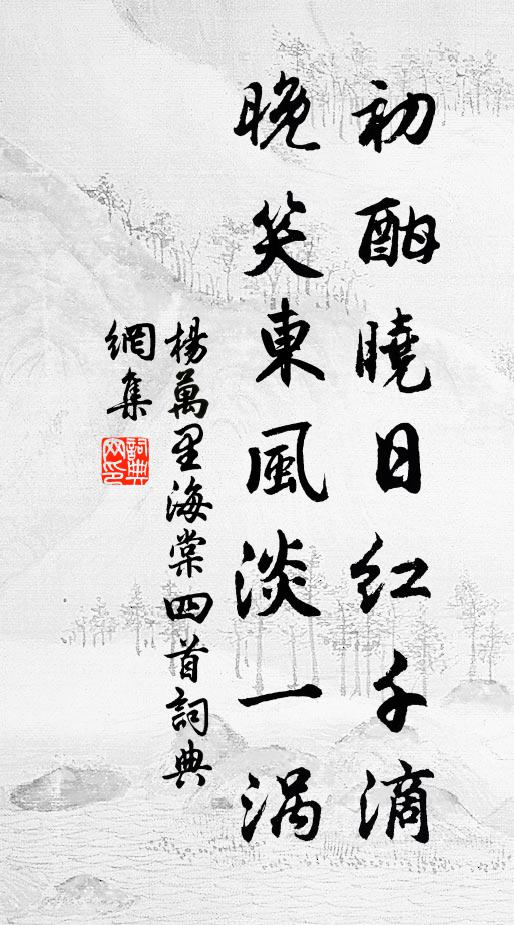 初酣曉日紅千滴
晚笑東風淡一涡
楊萬里海棠四首詞典
網集
詞典網印